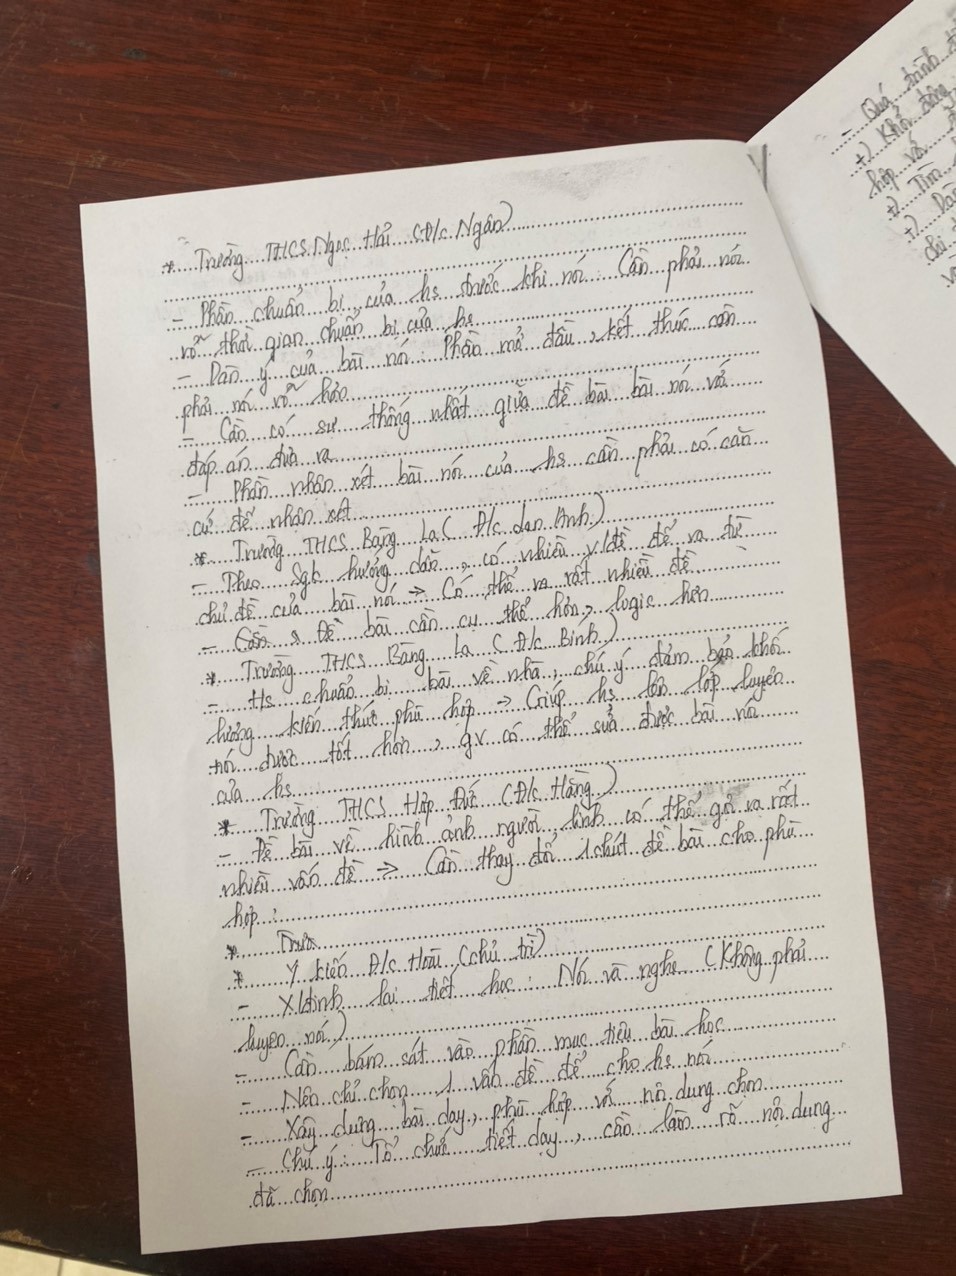 * Trường THCS Ngọc Hải (Đ/c Ngân)
- Phần chuẩn bị của hs trước khi nói: Cần phải nói
rõ thời gian chuẩn bị của hs
- Dàn ý của bài nói: Phần mở đầu, kết thúc cần
phải nói rõ hơn
- Cần có sự thống nhất giữa đề bài bài nói với
đáp án đưa ra
- Phần nhận xét bài nói của hs cần phải có căn
cứ để nhận xét
* Trường THCS Bàng La (Đ/c Lan Anh)
- Theo Sgk hướng dẫn, có nhiều v/đề để ra từ
chủ đề của bài nói → Có thể ra rất nhiều đề
- Đề bài cần cụ thể hơn, logic hơn
* Trường THCS Bàng La (Đ/c Bính)
- Hs chuẩn bị bài về nhà, chú ý đảm bảo khối
lượng kiến thức phù hợp → Giúp hs lên lớp luyện
nói được tốt hơn, gv có thể sửa được bài nói
của hs
* Trường THCS Hợp Đức (Đ/c Hằng)
- Đề bài về hình ảnh người lính có thể gợi ra rất
nhiều vấn đề → Cần thay đổi 1 chút đề bài cho phù
hợp.
* Trườ
* Ý kiến Đ/c Hoài (chủ trì)
- X/định lại tiết học: Nói và nghe (Không phải
luyện nói)
- Cần bám sát vào phần mục tiêu bài học
- Nên chỉ chọn 1 vấn đề để cho hs nói
- Xây dựng bài dạy, phù hợp với nội dung chọn
- Chú ý: Tổ chức tiết dạy, cần làm rõ nội dung
đã chọn
- Quá trình
+) Khởi động
hợp với
+) Tìm
+)